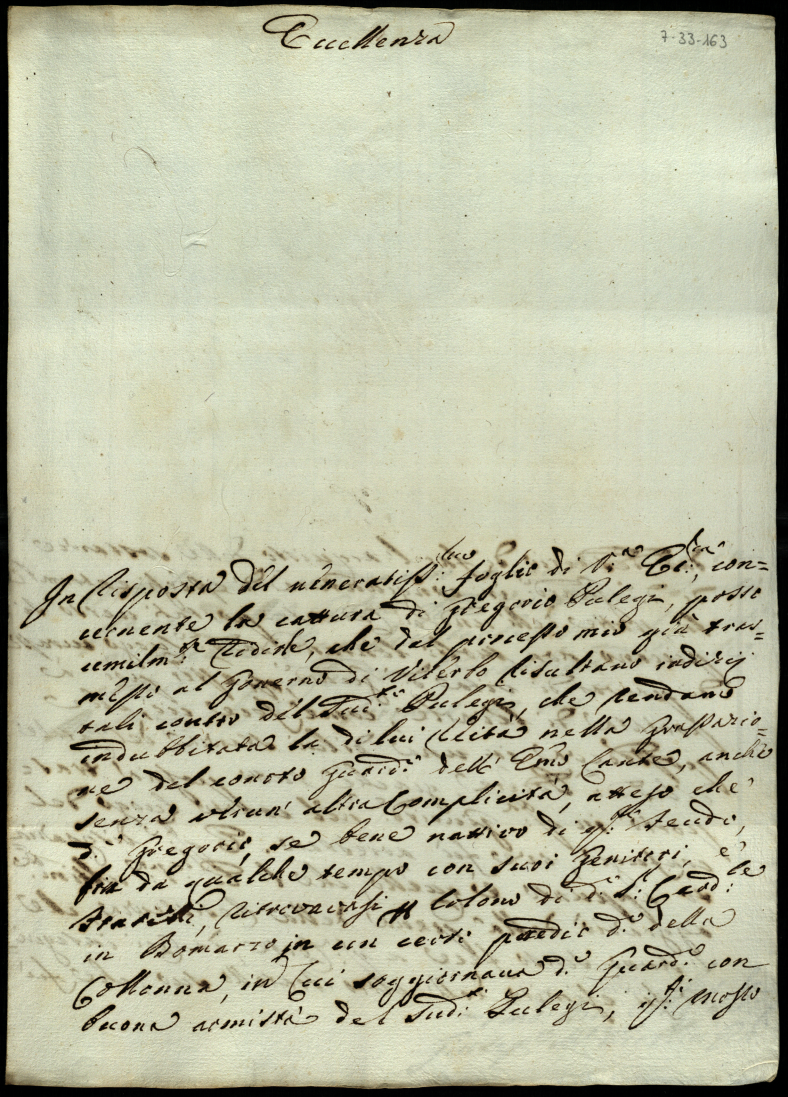 Eccellenza
7-33-163
In risposta del veneratiss:mo foglio di V.ra Ecc:za, con=
cernente la cattura di Gregorio Pulegi, posso
umilm:te ridirle, che dal processo mio già tras=
messo al Governo di Viterbo risultano indizij
tali contro del Sud:to Pulegi, che rendano
indubbitata la di lui reità nella Grassazio=
ne del conoto Guard:o dell' Emo Cante, anche
senza verun' altra Complicità, atteso che
d:o Gregorio, se bene nativo di q:to feudo,
fra da qualche tempo con suoi Genitori, e
ritrovavasi Colono di d:o S:r Card:le
in Bomarzo in un certo predio d:o della
Collonna, in cui soggiornava d:o Guard:o con
buona armistà del Sud:to Pulegi, q:ti mosso